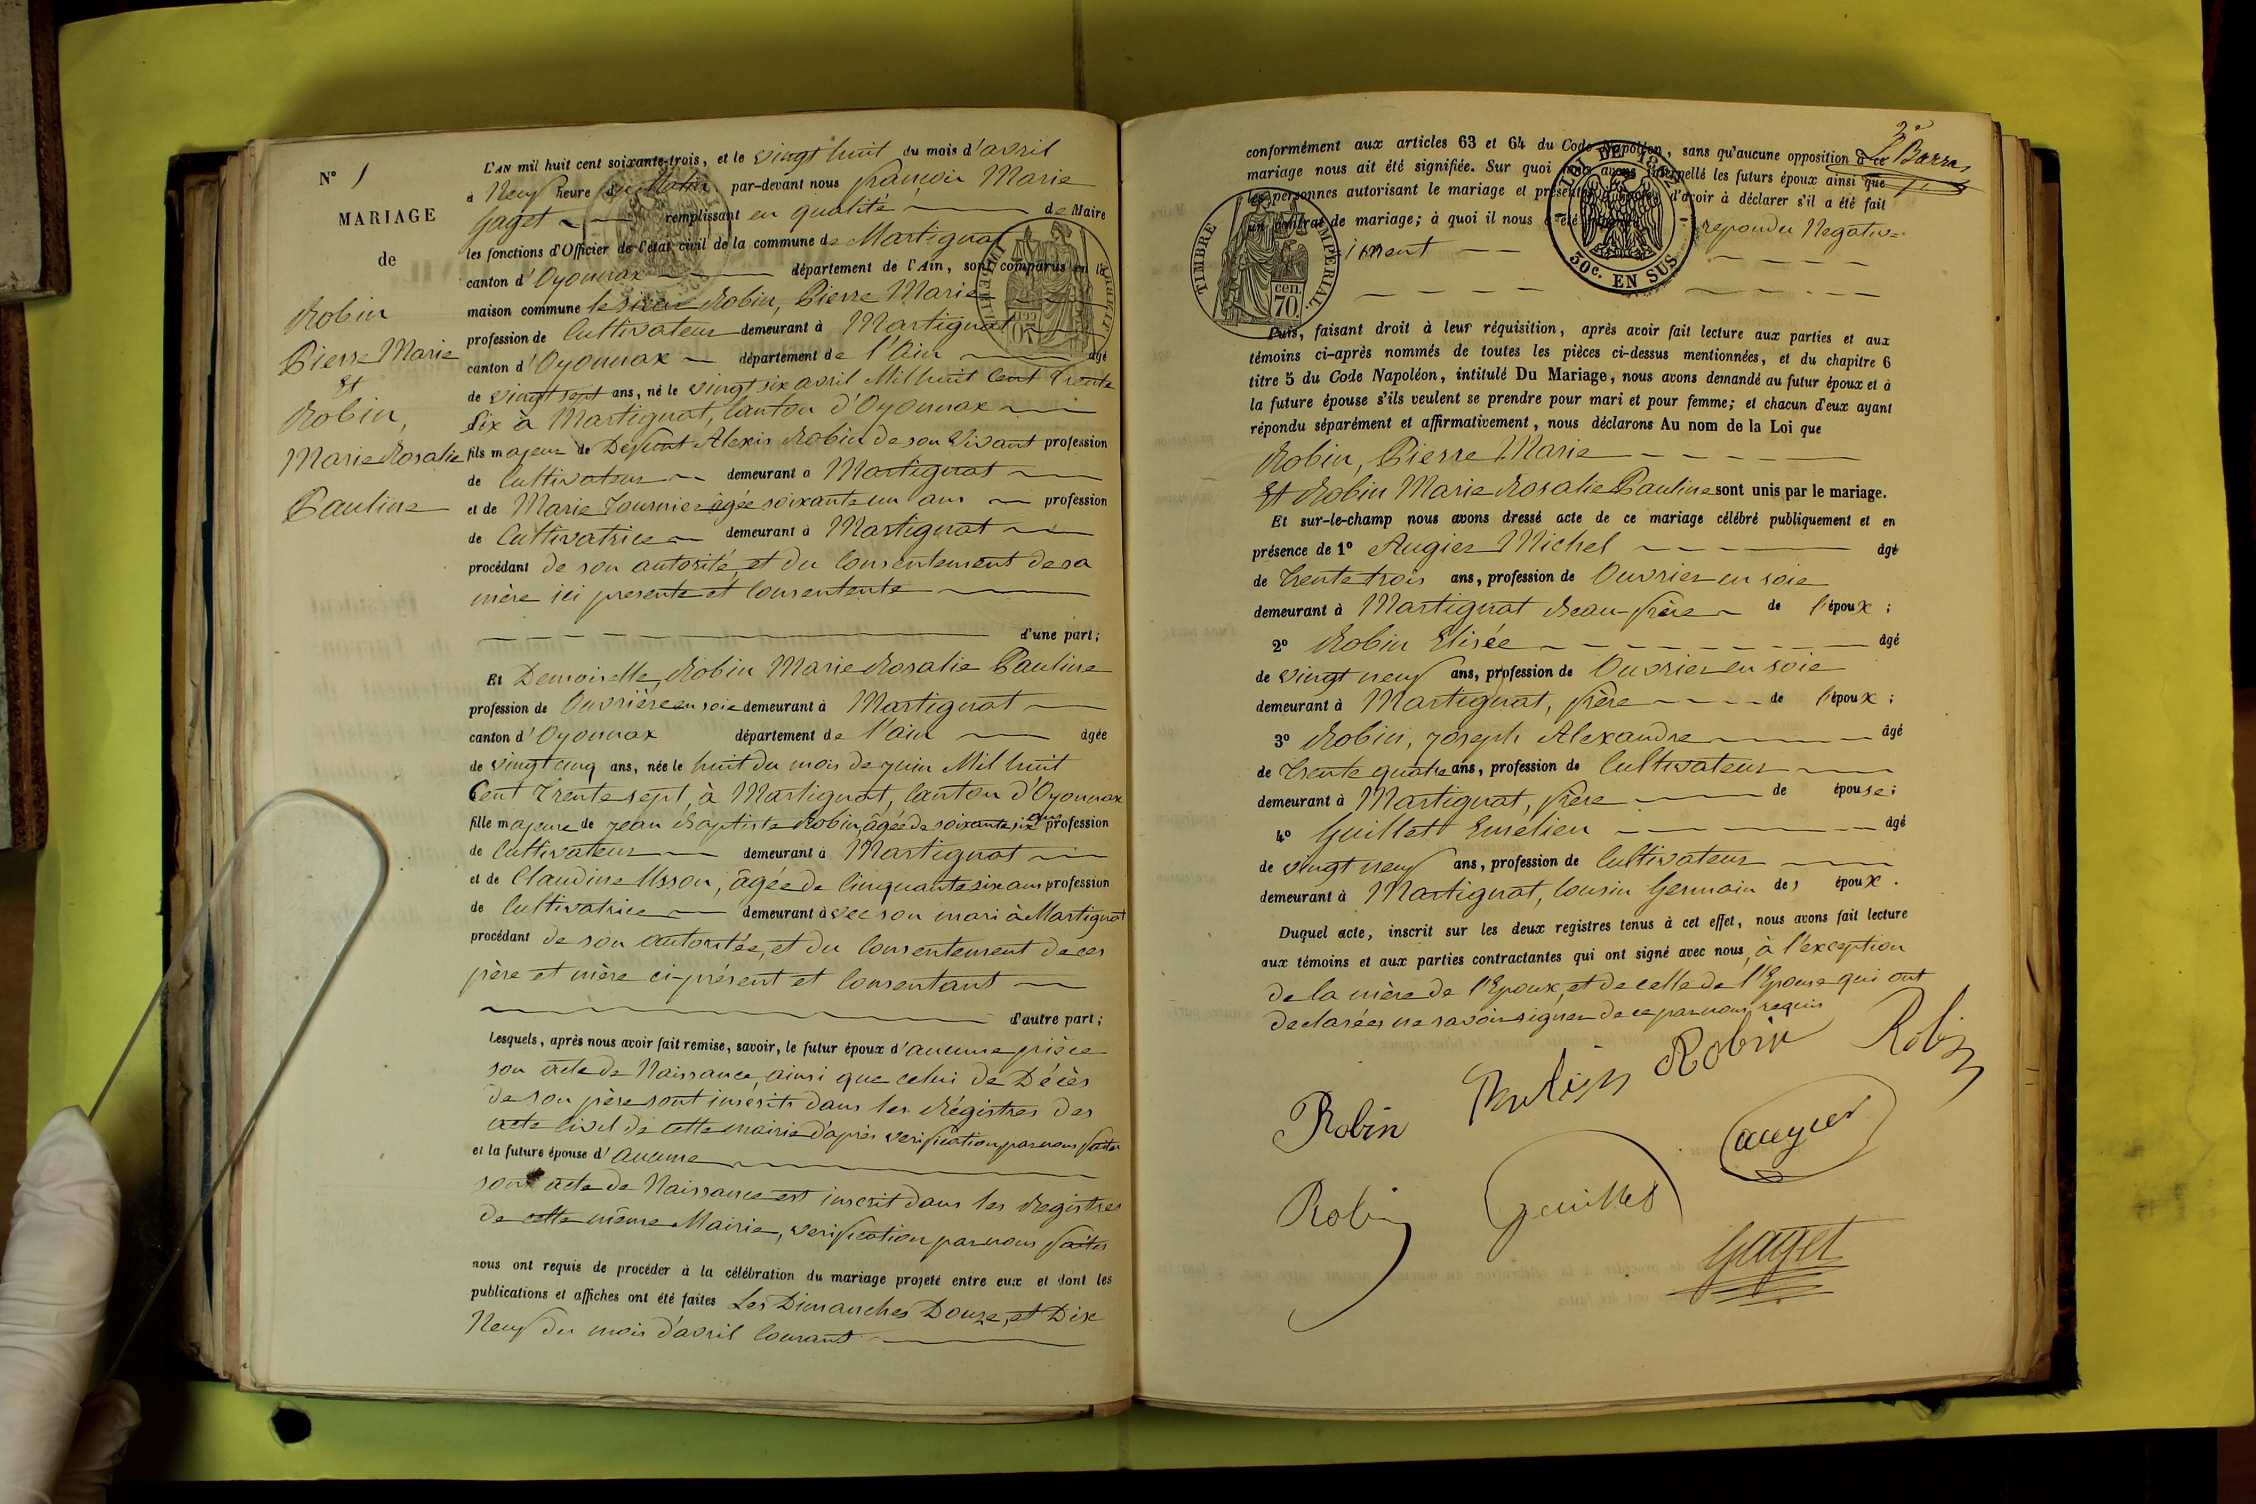 N° 1
MARIAGE
de
Robin
Pierre Marie
Et
Robin,
Marie Rosalie
Pauline
L'AN mil huit cent soixante-trois, et le vingt huit du mois d'avril
à Neuf heure du Matin par-devant nous françois Marie
Gaget remplissant en qualité de Maire
les fonctions d'Officier de l'état civil de la commune de Martignat
canton d'Oyonnax département de l'Ain, sont comparus en la
maison commune le sieur Robin, Pierre Marie
profession de Cultivateur demeurant à Martignat
canton d'Oyonnax département de l'Ain âgé
de vingt sept ans, né le vingt six avril Mil huit Cent Trente
Six à Martignat, Canton d'Oyonnax
fils majeur de Défunt Alexis Robin de son Vivant profession
de Cultivateur demeurant à Martignat
et de Marie Tournier âgée soixante un ans profession
de Cultivatrice demeurant à Martignat
procédant de son autorité, et du Consentement de sa
mère ici presente et Consentente
d'une part;
Et Demoiselle, Robin Marie Rosalie Pauline
profession de Ouvrière en soie demeurant à Martignat
canton d'Oyonnax département de l'ain âgée
de vingt cinq ans, née le huit du mois de juin Mil huit
Cent Trente sept, à Martignat, Canton d'Oyonnax
fille majeure de Jean Baptiste Robin, âgée de soixante six ans profession
de Cultivateur demeurant à Martignat
et de Claudine Usson, âgée de Cinquante six ans profession
de Cultivatrice demeurant avec son mari à Martignat
procédant de son autoritée, et du Consentement de ces
père et mère ci-présent et Consentant
d'autre part;
Lesquels, après nous avoir fait remise, savoir, le futur époux d'aucune pièce
son acte de Naissance, ainsi que celui de Décès
de son père sont inscrits dans les Régistres des
acte Civil de cette mairie d'après verification par nous faites
et la future épouse d'aucune
son acte de Naissance est inscrit dans les Registres
de cette même Mairie, verification par nous faites
nous ont requis de procéder à la célébration du mariage projeté entre eux et dont les
publications et affiches ont été faites Les Dimanches Douze, et Dix
Neuf du mois d'avril Courant
conformément aux articles 63 et 64 du Code Napoléon, sans qu'aucune opposition à ce
mariage nous ait été signifiée. Sur quoi nous avons interpellé les futurs époux ainsi que
les personnes autorisant le mariage et présentes d'avoir à déclarer s'il a été fait
un contrat de mariage; à quoi il nous a été répondu Negative=
iment
TIMBRE IMPERIAL.
cen. 70.
LOI DE 1862
50c. EN SUS
Puis, faisant droit à leur réquisition, après avoir fait lecture aux parties et aux
témoins ci-après nommés de toutes les pièces ci-dessus mentionnées, et du chapitre 6
titre 5 du Code Napoléon, intitulé Du Mariage, nous avons demandé au futur époux et à
la future épouse s'ils veulent se prendre pour mari et pour femme; et chacun d'eux ayant
répondu séparément et affirmativement, nous déclarons Au nom de la Loi que
Robin, Pierre Marie
Et Robin Marie Rosalie Pauline sont unis par le mariage.
Et sur-le-champ nous avons dressé acte de ce mariage célébré publiquement et en
présence de 1° Augier Michel âgé
de Trente trois ans, profession de Ouvrier en soie
demeurant à Martignat Beau-frère de l'époux;
2° Robin Elisée âgé
de vingt neuf ans, profession de Ouvrier en soie
demeurant à Martignat, frère de l'époux;
3° Robin, Joseph Alexandre âgé
de Trente quatre ans, profession de Cultivateur
demeurant à Martignat, frère de épouse;
4° Guillet Emelien âgé
de vingt neuf ans, profession de Cultivateur
demeurant à Martignat, Cousin Germain des époux.
Duquel acte, inscrit sur les deux registres tenus à cet effet, nous avons fait lecture
aux témoins et aux parties contractantes qui ont signé avec nous, à l'exception
de la mère de l'Epoux, et de celle de l'Epouse qui ont
declarées ne savoir signer de ce par nous requis
Robin Robin
Robin
augier
Robin Guillet
Gaget